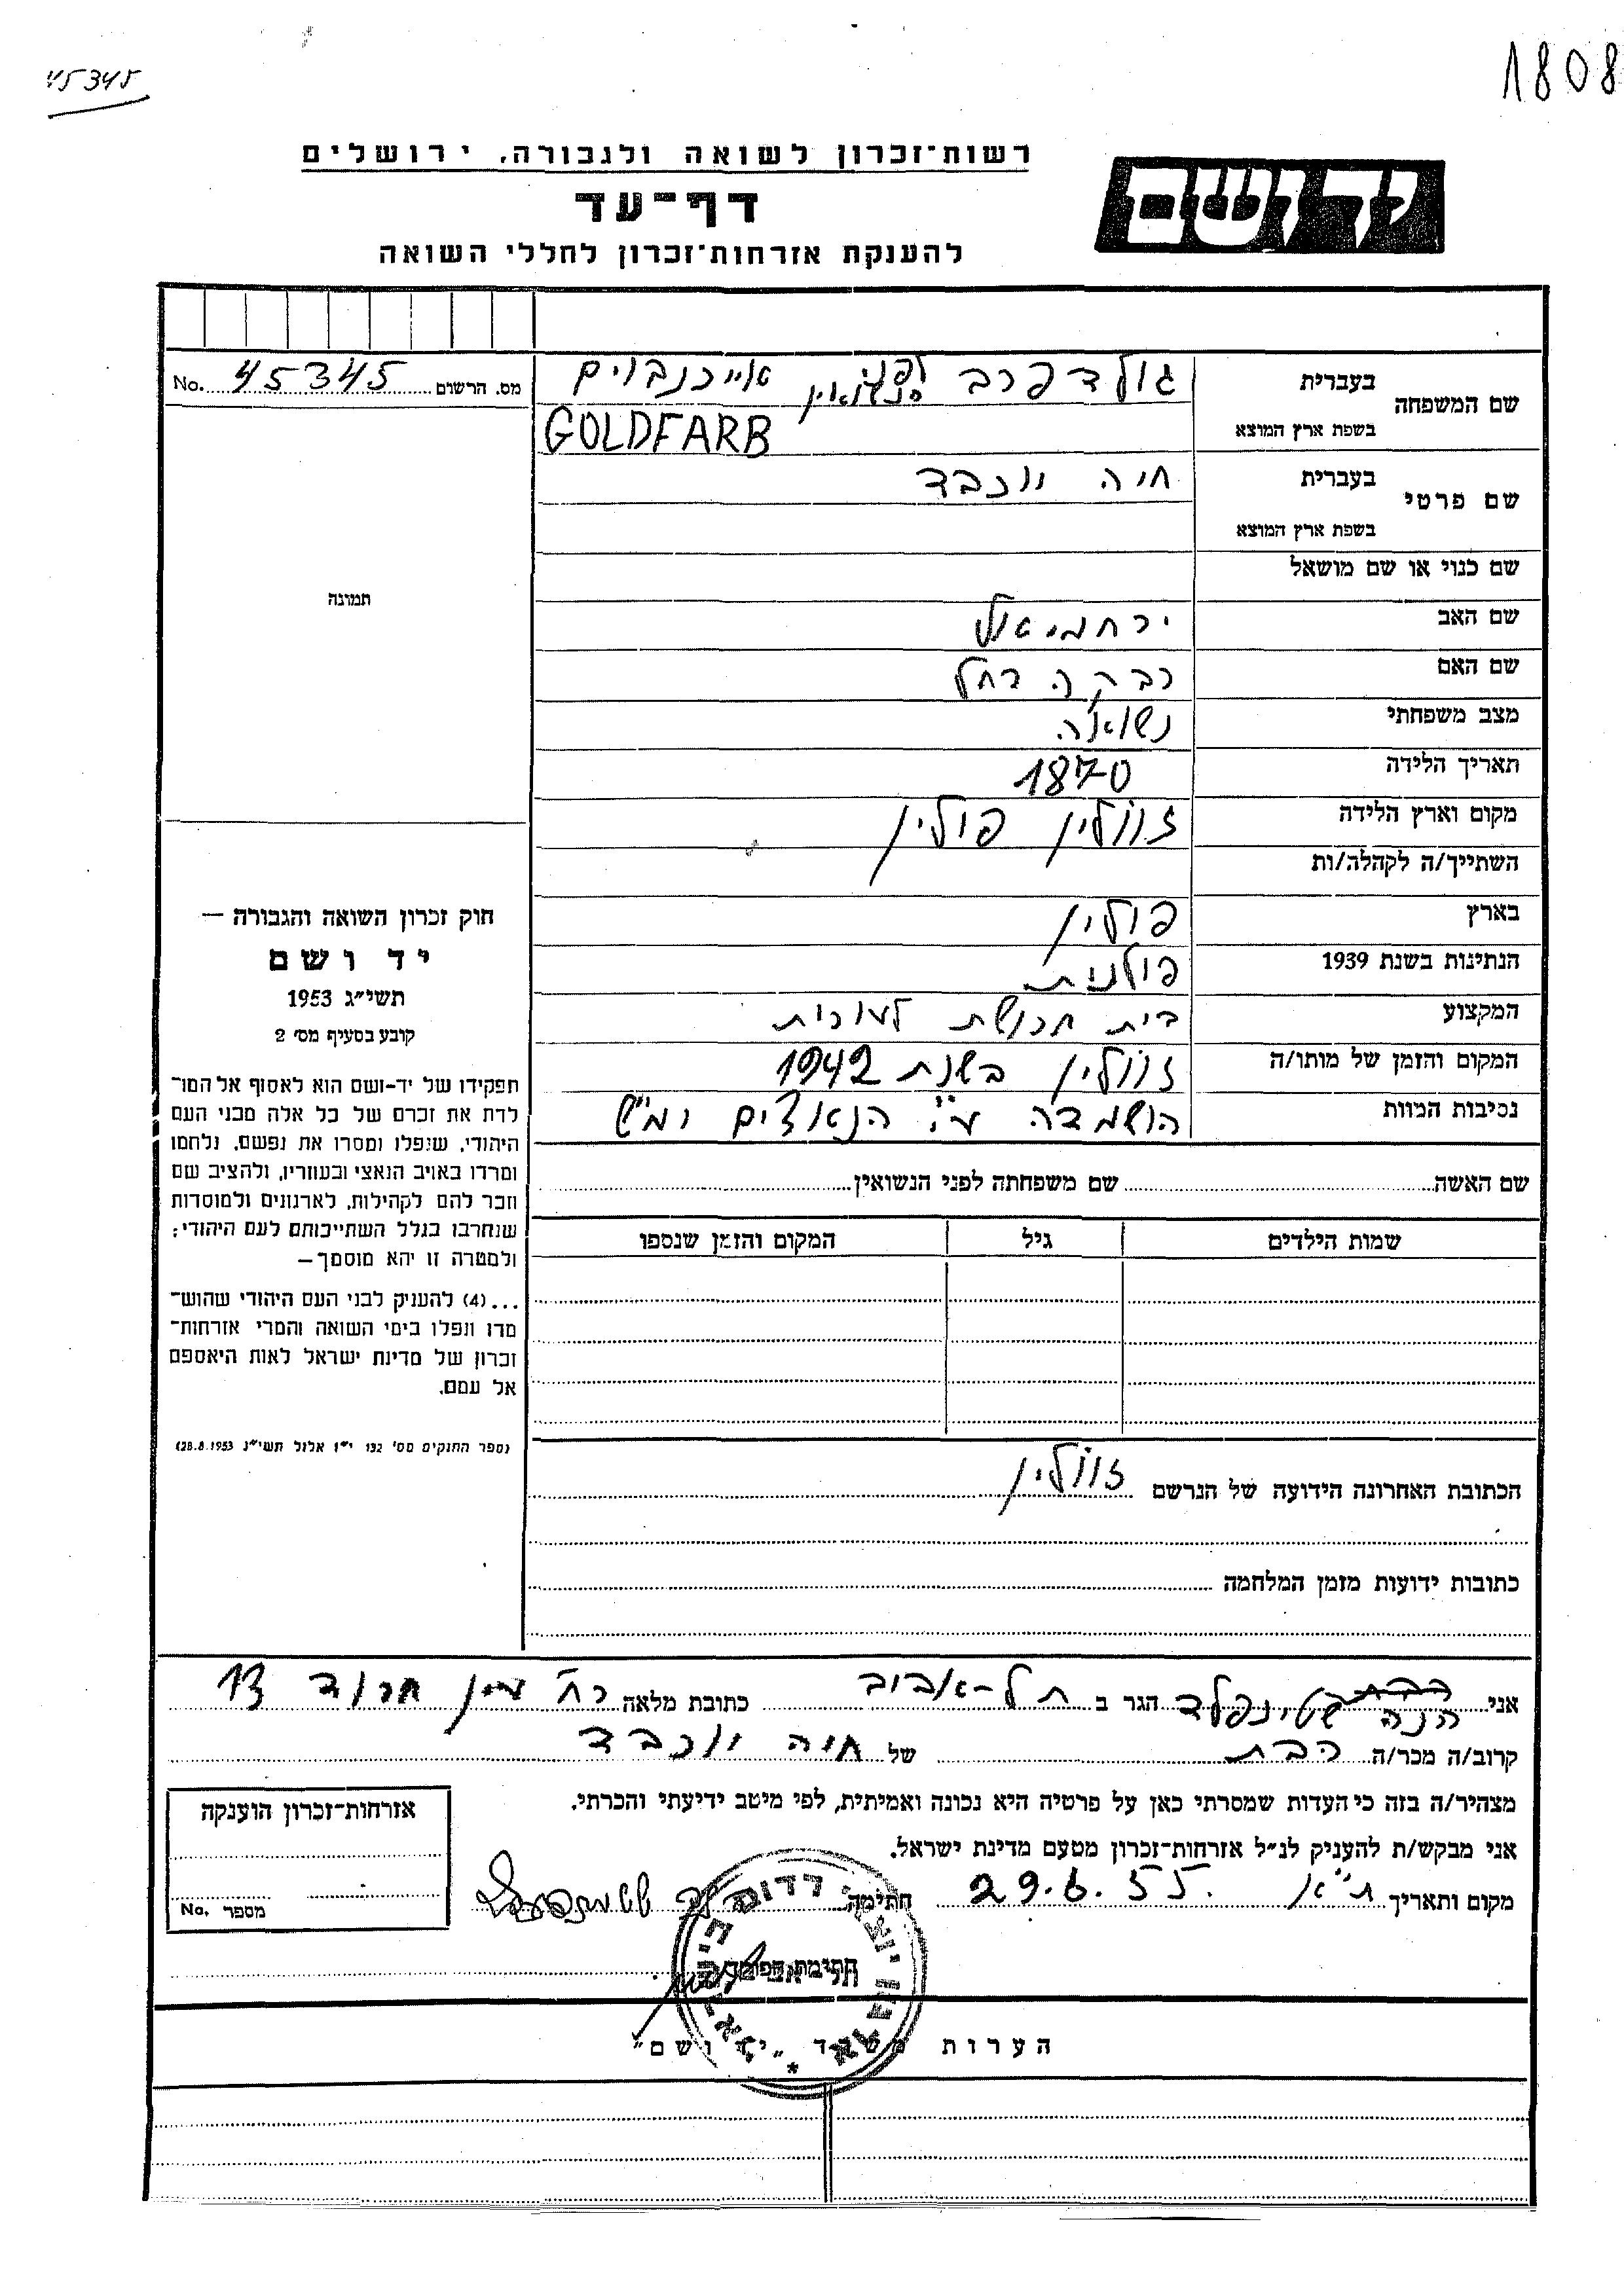 45345
1808
רשות־זכרון לשואה ולגבורה, ירושלים
יד ושם
דף־עד
להענקת אזרחות־זכרון לחללי השואה
מס. הרשום 45345 No.
שם המשפחה
בעברית
גולדפרב לפני הנשואין אייכנבוים
בשפת ארץ המוצא
GOLDFARB
שם פרטי
בעברית
חיה יוכבד
בשפת ארץ המוצא
שם כנוי או שם מושאל
שם האב ירחמיאל
שם האם רבקה רחל
מצב משפחתי נשואה
תאריך הלידה 1870
מקום וארץ הלידה זוולין פולין
השתייך/ה לקהלה/ות
בארץ פולין
הנתינות בשנת 1939 פולנית
המקצוע בית חרושת לעורות
המקום והזמן של מותו/ה זוולין בשנת 1942
נסיבות המוות הושמדה ע"י הנאצים ימ"ש
שם האשה
שם משפחתה לפני הנשואין
שמות הילדים
גיל
המקום והזמן שנספו
הכתובת האחרונה הידועה של הנרשם זוולין
כתובות ידועות מזמן המלחמה
תמונה
חוק זכרון השואה והגבורה —
יד ושם
תשי״ג 1953
קובע בסעיף מס׳ 2
תפקידו של יד-ושם הוא לאסוף אל המו־
לדת את זכרם של כל אלה מבני העם
היהודי, שנפלו ומסרו את נפשם, נלחמו
ומרדו באויב הנאצי ובעוזריו, ולהציב שם
וזכר להם לקהילות, לארגונים ולמוסדות
שנחרבו בגלל השתייכותם לעם היהודי;
ולמטרה זו יהא מוסמך —
...(4) להעניק לבני העם היהודי שהוש־
מדו ונפלו בימי השואה והמרי אזרחות־
זכרון של מדינת ישראל לאות היאספם
אל עמם.
(ספר החוקים מס׳ 132 י״ז אלול תשי״ג 28.8.1953)
אני הנה שטינפלד הגר ב תל-אביב כתובת מלאה רח' עין חרוד 13
קרוב/ה מכר/ה הבת של חיה יוכבד
מצהיר/ה בזה כי העדות שמסרתי כאן על פרטיה היא נכונה ואמיתית, לפי מיטב ידיעתי והכרתי.
אני מבקש/ת להעניק לנ״ל אזרחות־זכרון מטעם מדינת ישראל.
מקום ותאריך ת"א 29.6.55 חתימה
חתימת הפוקד
אזרחות־זכרון הוענקה
מספר No.
הערות משרד ״יד ושם״